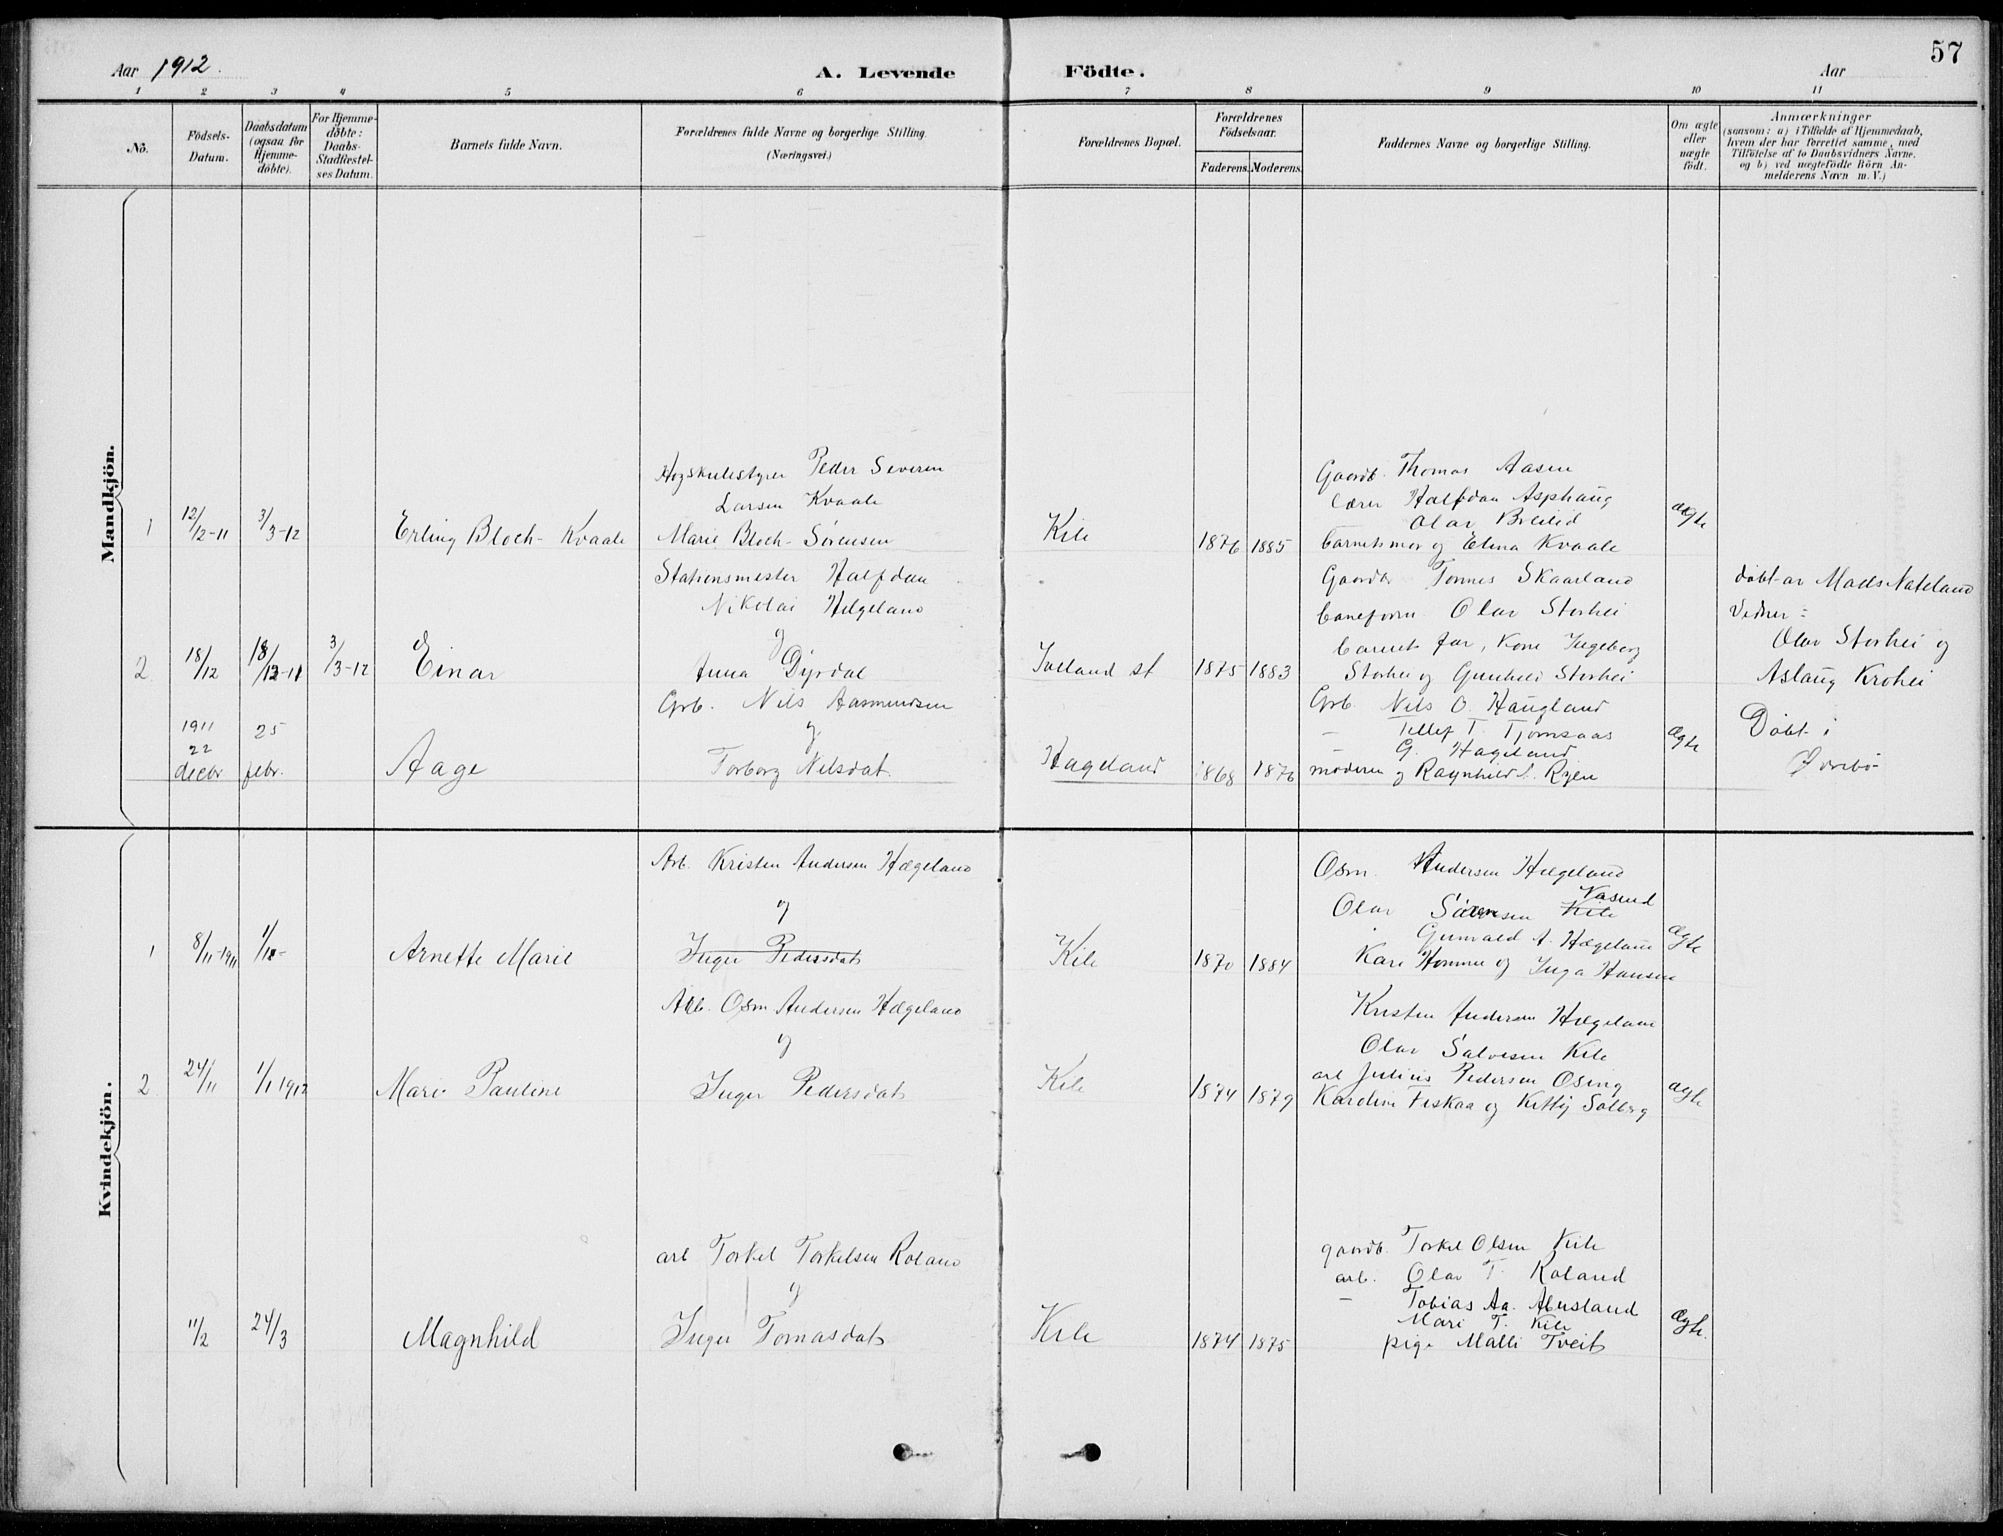 57
Aar 1912.
A. Levende
Födte.
Aar
1 2 3 4 5 6 7 8 9 10 11
No.
Födsels-
Datum.
Daabsdatum
(ogsaa for
Hjemme-
döbte).
For Hjemme-
döbte:
Daabs-
Stadfæstel-
ses Datum.
Barnets fulde Navn.
Forældrenes fulde Navne og borgerlige Stilling.
(Næringsvei.)
Forældrenes Bopæl.
Forældrenes
Födselsaar.
Faderens. Moderens.
Faddernes Navne og borgerlige Stilling.
Om ægte
eller
uægte
födt.
Anmærkninger
(saasom: a) i Tilfælde af Hjemmedaab,
hvem der har forrettet samme, med
Tilföielse af to Daabsvidners Navne.
og b) ved uægtefödte Börn An-
melderens Navn m. V.)
Mandkjön.
1
12/12-11
3/3-12
Erling Bloch-Kvaale
Peder Severin
Larsen Kvaale
Marie Bloch-Sørensen
Kile
1876 1885
Gaardb. Thomas Aasen
Lærer Halfdan Asphaug
Olav Breilid
barnets mor og Elina Kvaale
ægte
2
18/12
18/12-11
3/3-12
Einar
Stationsmester Halfdan
Nikolai Helgeland
og
Anna Dyrdal
Iveland st
1875 1883
Gaardb Tønnes Skaarland
Baneform. Olav Storhei
barnets far, Kone Ingeborg
Storhei og Gunhild Storhei
døbt av Mads Nateland
Vidner:
Olav Storhei og
Aslaug Krohei
1911
22
decbr
25
febr.
Aage
Grb. Nils Aasmundsen
og
Torborg Nilsdat.
Hageland
1868 1876
Grb. Nils O. Haugland
— Tellef T. Tjomsaas
— G. Hageland
moderen og Ragnhild Ryen
ægte
Døbt i
Øvrebø
Kvindekjön.
1
8/11-1911
Arnette Marie
Arb. Kristen Andersen Hægeland
og
Inger Pedersdat
Kile
1870 1884
Osm. Andersen Hægeland
Vasend
Olav Sørensen Kile
Gunvald A. Hægeland
Kari Homme og Inga Hansen
Ægte
2
24/11
1/1 1912
Mari Pauline
Arb. Osm Andersen Hægeland
og
Inger Pedersdat
Kile
1874 1879
Kristen Andersen Hægeland
Olav Salvesen Kile
arb Julius Pedersen Osing
Karoline Fiskaa og Kitty Solberg
ægte
11/2
24/3
Magnhild
arb Torkel Torkelsen Roland
og
Inger Tomasdat
Kile
1874 1875
gaardb. Torkel Olsen Kile
arb. Olav T. Roland
— Tobias Aa. Abusland
Mari T. Kile
pige Malli Tveit
Ægte.